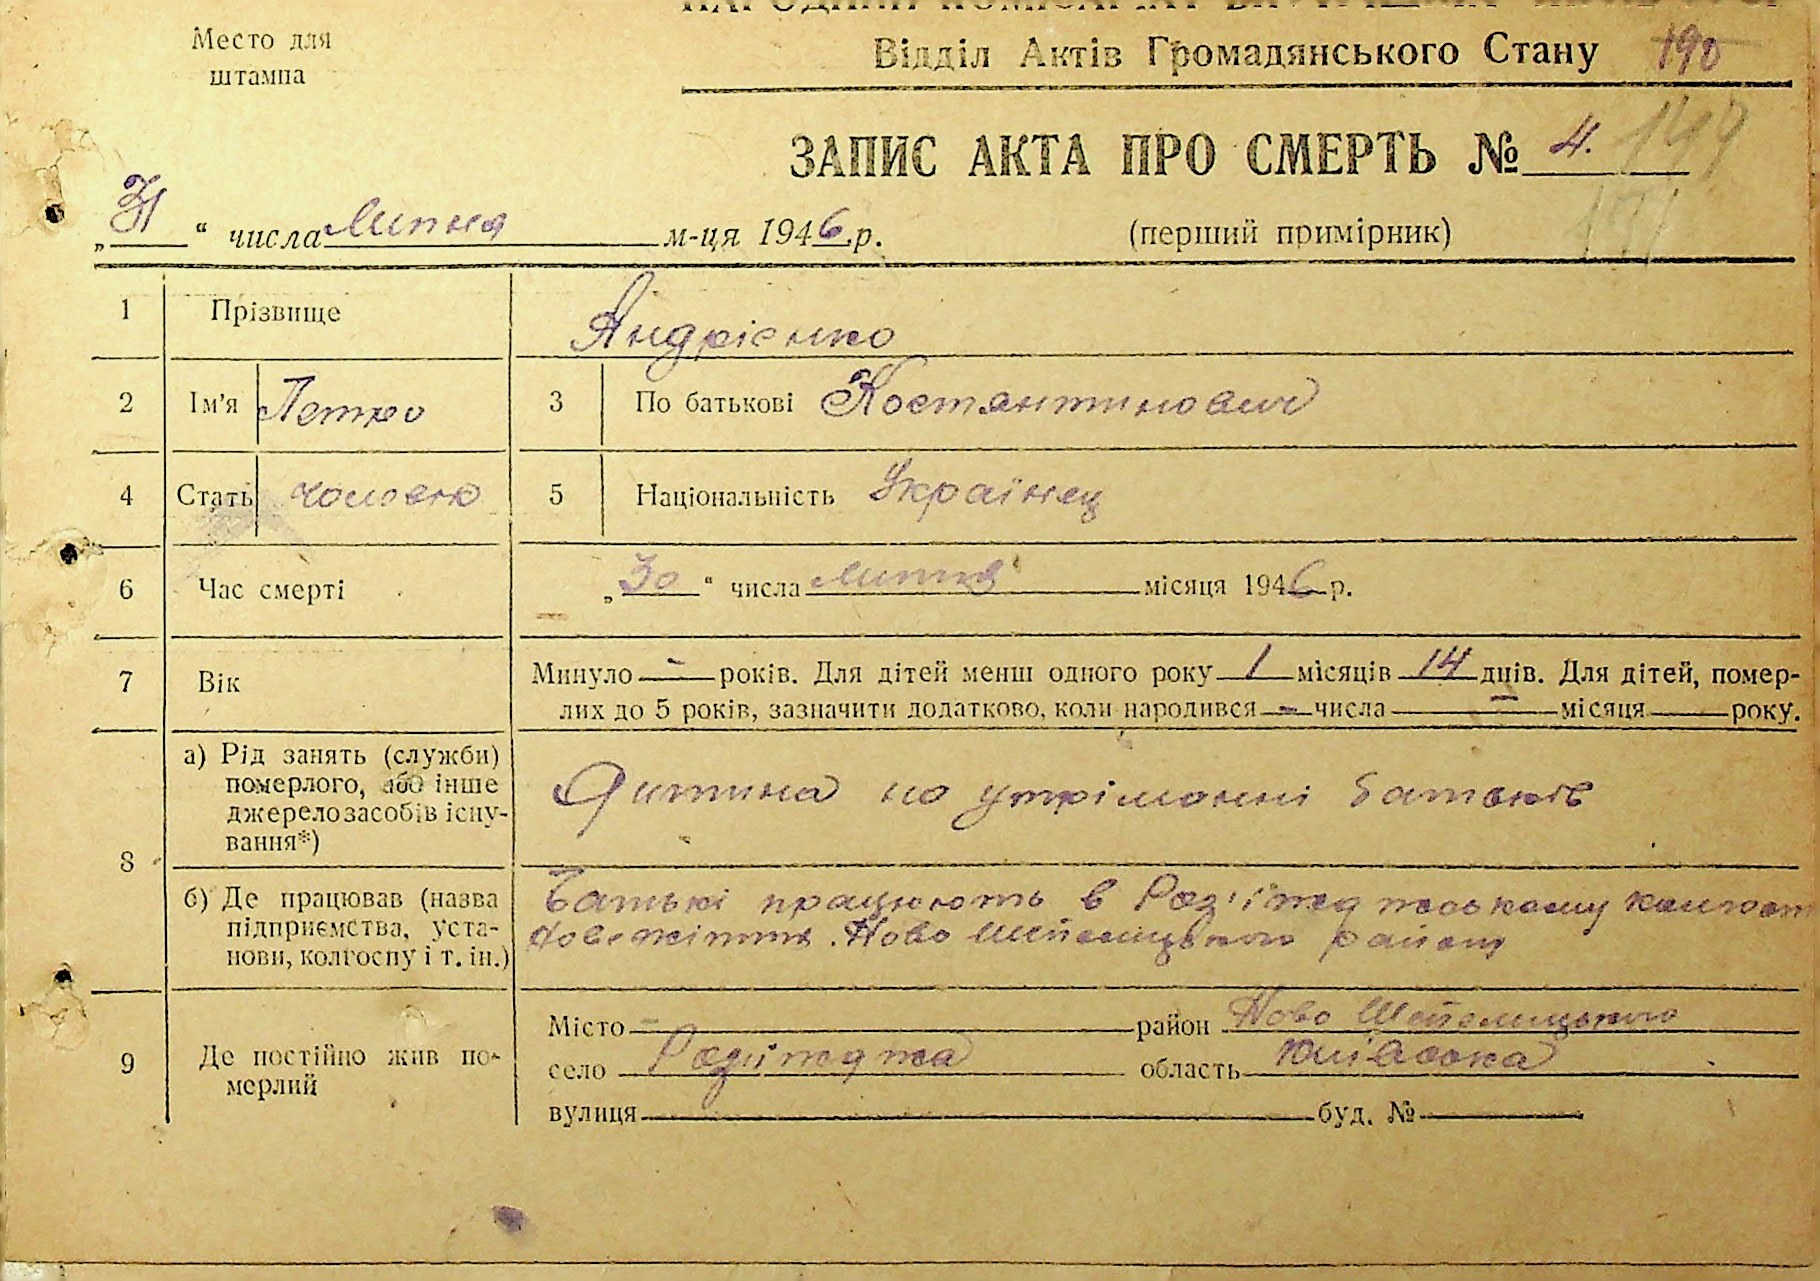 НАРОДНИЙ КОМІСАРІАТ ВНУТРІШНІХ
Место для
штампа
Відділ Актів Громадянського Стану 190
ЗАПИС АКТА ПРО СМЕРТЬ № 4.
„31“ числа Липня м-ця 1946 р. (перший примірник)
1 Прізвище Андрієнко
2 Ім'я Петро 3 По батькові Костянтинович
4 Стать чоловік 5 Національність Українец
6 Час смерті „30“ числа Липня місяця 1946 р.
7 Вік Минуло - років. Для дітей менш одного року 1 місяців 14 днів. Для дітей, помер-
лих до 5 років, зазначити додатково, коли народився - числа - місяця року.
8 а) Рід занять (служби)
померлого, або інше
джерело засобів існу-
вання*)
Дитина на утріманні батьків
б) Де працював (назва
підприємства, уста-
нови, колгоспу і т. ін.)
Батькі працюють в
Нове життя. Ново Шепелицького району
9 Де постійно жив по-
мерлий
Місто - район Ново Шепелицького
село область Київська
вулиця буд. №